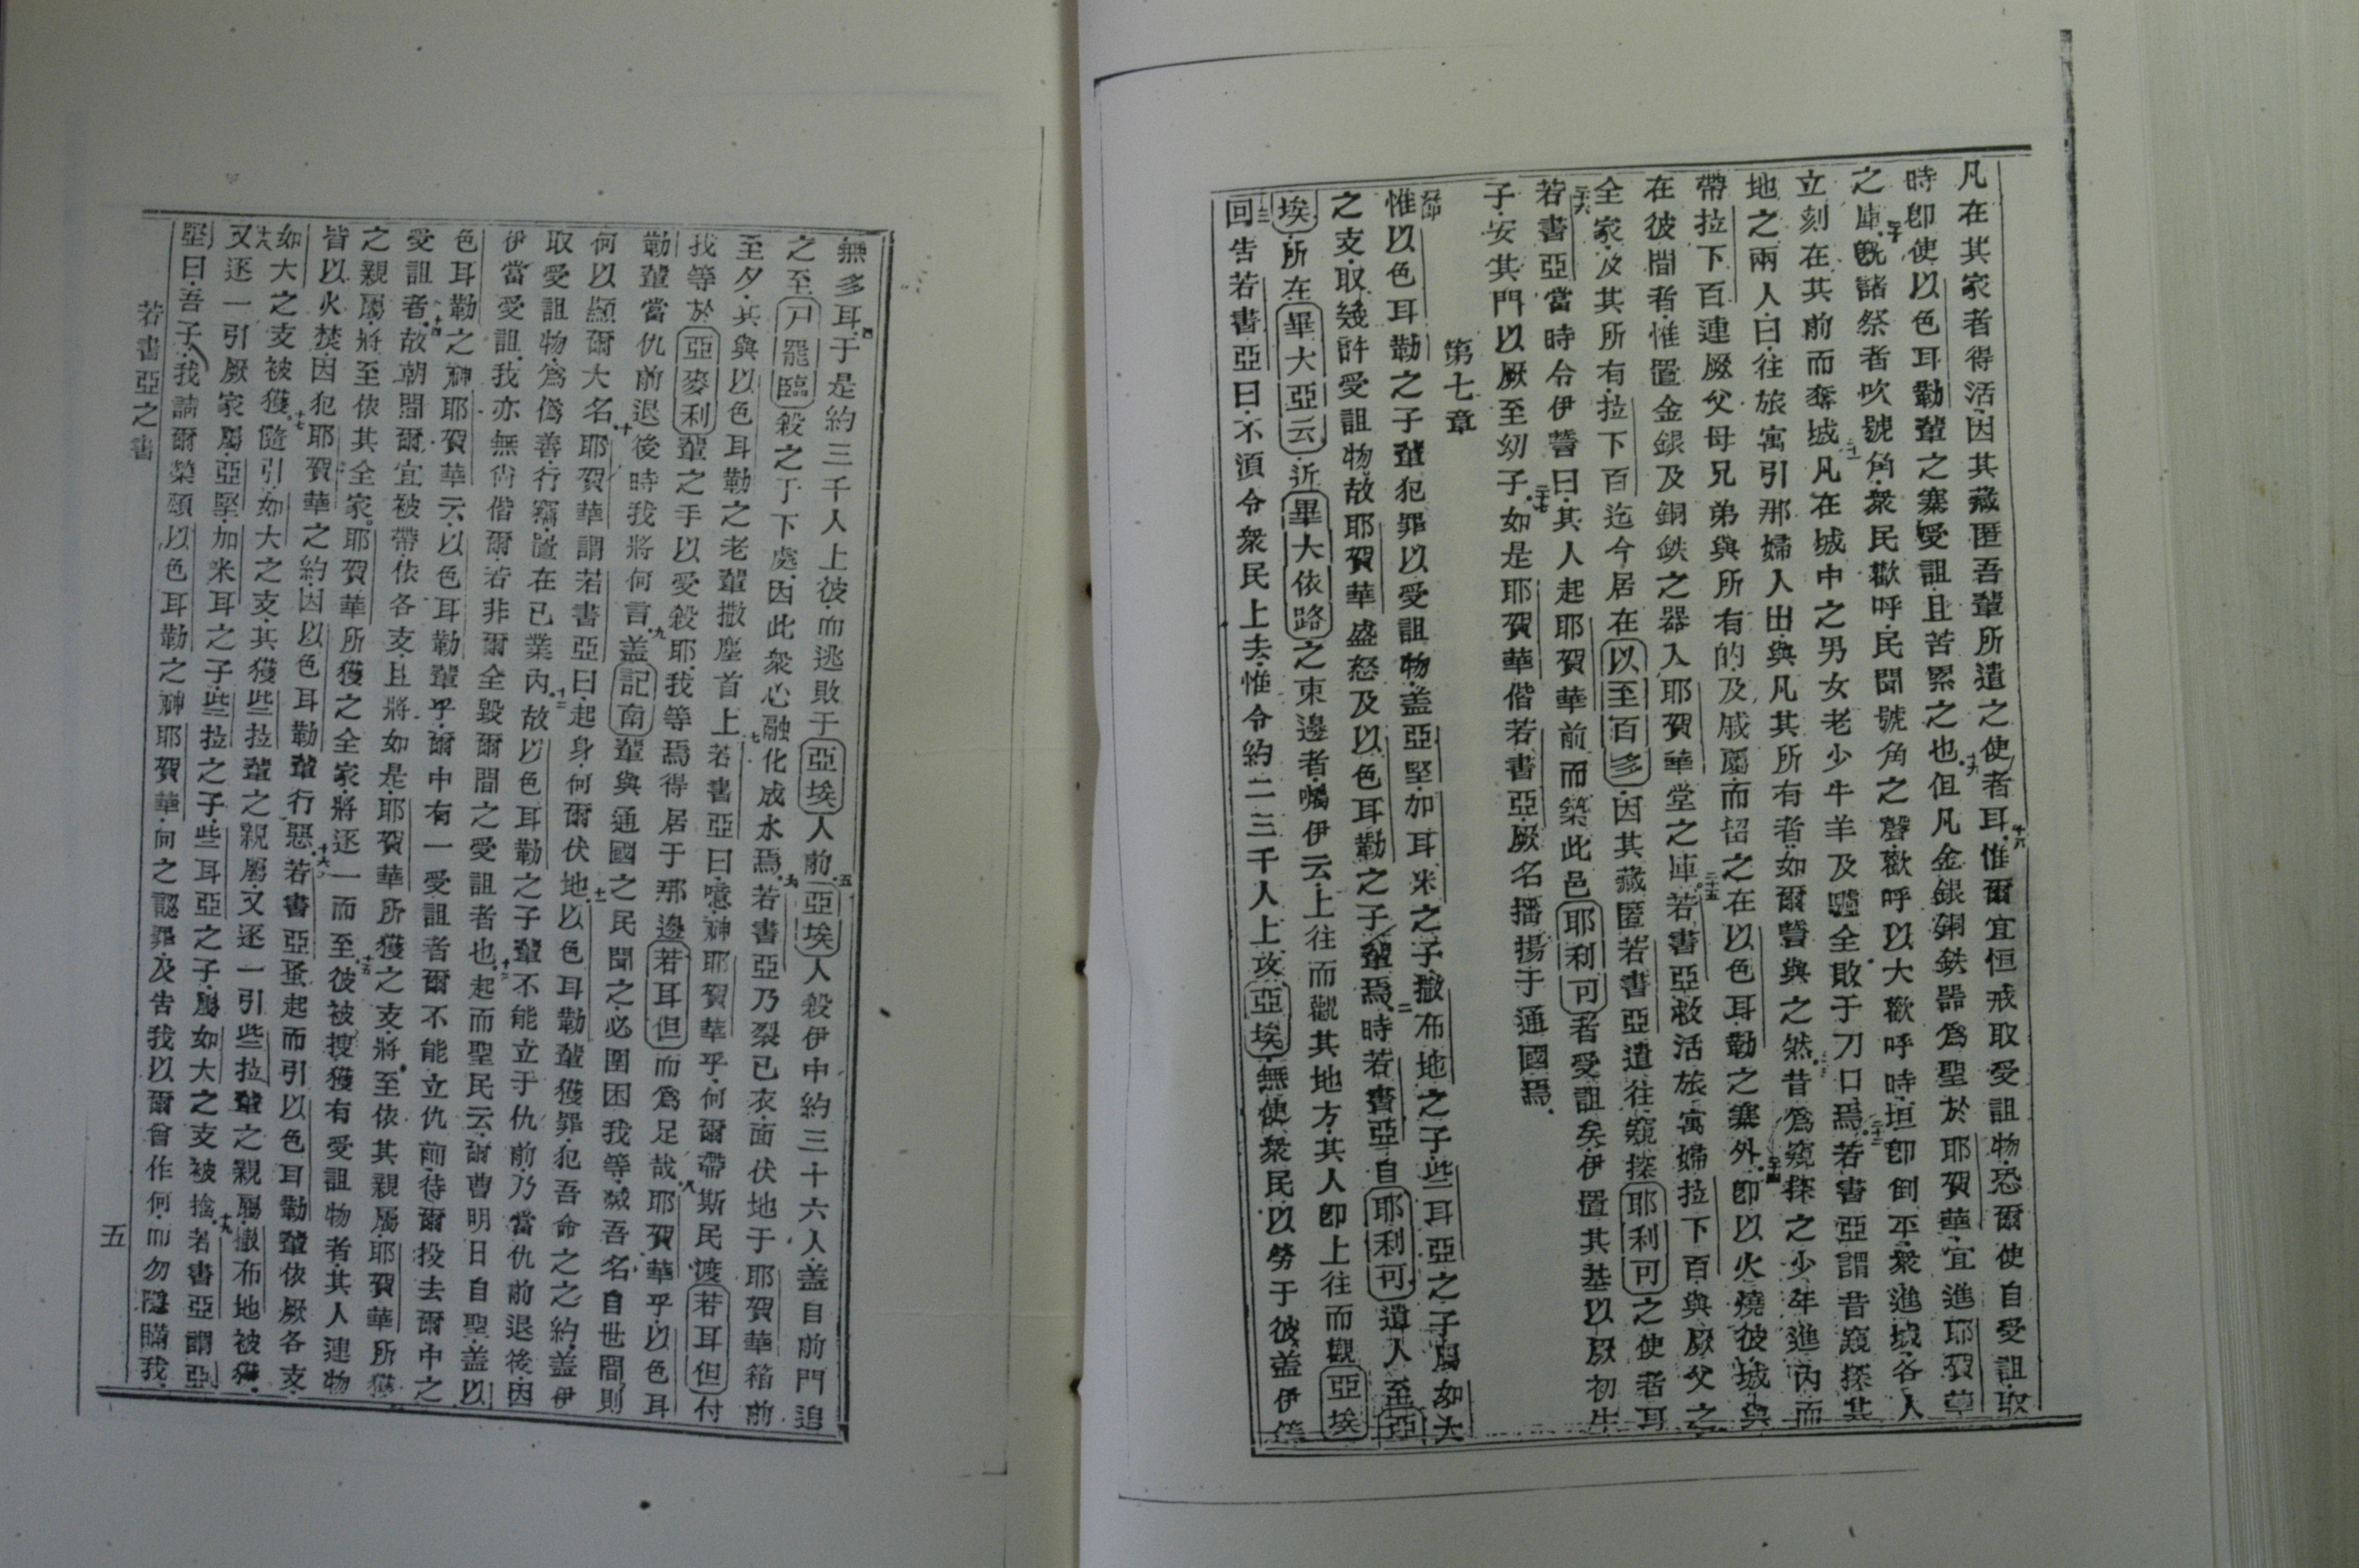 凡在其家者得活因其藏匿吾輩所遣之使者耳十八惟爾宜恒戒取受詛物恐爾使自受詛取
時卽使以色耳勒輩之寨受詛且苦累之也十九但凡金銀銅鉄器爲聖於耶賀華宜進耶賀華
之庫二十旣諸祭者吹號角衆民歡呼民聞號角之聲歡呼以大歡呼時垣卽倒平衆進城各人
立刻在其前而奪城二十一凡在城中之男女老少牛羊及驢全敗于刀口焉二十二若書亞謂昔窺探其
地之兩人曰往旅寓引那婦人出與凡其所有者如爾誓與之然二十三昔爲窺探之少年進內而
帶拉下百連厥父母兄弟與所有的及戚屬而留之在以色耳勒之寨外二十四卽以火燒彼城與
在彼間者惟置金銀及銅鉄之器入耶賀華堂之庫二十五若書亞救活旅寓婦拉下百與厥父之
全家及其所有拉下百迄今居在以至百多因其藏匿若書亞遣往窺探耶利可之使者耳
二十六若書亞當時令伊誓曰其人起耶賀華前而築此邑耶利可者受詛矣伊置其基以厥初生
子安其門以厥至幼子二十七如是耶賀華偕若書亞厥名播揚于通國焉
第七章
惟以色耳勒之子輩犯罪以受詛物蓋亞堅加耳米之子撒布地之子些耳亞之子屬如大
之支取幾許受詛物故耶賀華盛怒及以色耳勒之子輩焉二時若書亞自耶利可遣人至亞
埃所在畢大亞云近畢大依路之東邊者囑伊云上往而觀其地方其人卽上往而觀亞埃
三回告若書亞曰不須令衆民上去惟令約二三千人上攻亞埃無使衆民以勞于彼蓋伊等
無多耳四于是約三千人上彼而逃敗于亞埃人前五亞埃人殺伊中約三十六人蓋自前門追
之至尸罷臨殺之于下處因此衆心融化成水焉六若書亞乃裂己衣面伏地于耶賀華箱前
至夕其與以色耳勒之老輩撒塵首上七若書亞曰噫神耶賀華乎何爾帶斯民渡若耳但付
我等於亞麥利輩之手以受殺耶我等焉得居于那邊若耳但而爲足哉八耶賀華乎以色耳
勒輩當仇前退後時我將何言九蓋記南輩與通國之民聞之必圍困我等滅吾名自世間則
何以顯爾大名十耶賀華謂若書亞曰起身何爾伏地十一以色耳勒輩獲罪犯吾命之之約蓋伊
取受詛物爲僞善行竊置在己業內十二故以色耳勒之子輩不能立于仇前乃當仇前退後因
伊當受詛我亦無尙偕爾若非爾全毀爾間之受詛者也十三起而聖民云爾曹明日自聖蓋以
色耳勒之神耶賀華云以色耳勒輩乎爾中有一受詛者爾不能立仇前待爾投去爾中之
受詛者十四故朝間爾宜被帶依各支且將如是耶賀華所獲之支將至依其親屬耶賀華所獲
之親屬將至依其全家耶賀華所獲之全家將逐一而至十五彼被搜獲有受詛物者其人連物
皆以火焚因犯耶賀華之約因以色耳勒輩行惡十六若書亞蚤起而引以色耳勒輩依厥各支
如大之支被獲十七隨引如大之支其獲些拉輩之親屬又逐一引些拉輩之親屬撒布地被獲
十八又逐一引厥家屬亞堅加米耳之子些拉之子些耳亞之子屬如大之支被擒十九若書亞謂亞
堅曰吾子我請爾榮頌以色耳勒之神耶賀華向之認罪及告我以爾曾作何而勿隱瞞我
若書亞之書
五